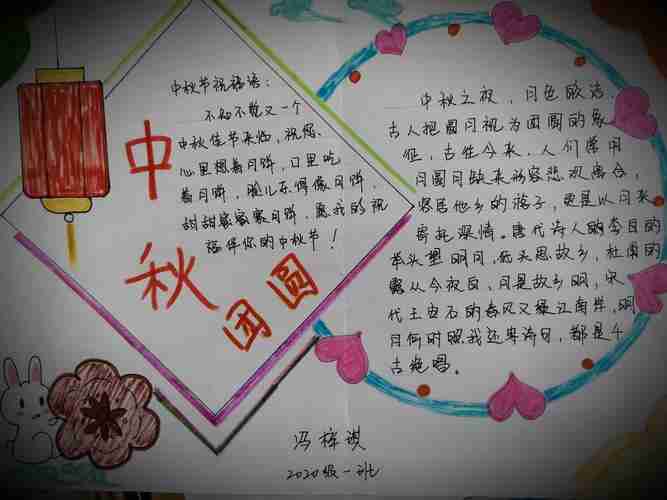 中秋节祝福语：
不知不觉又一个
中秋佳节来临，祝您
心里想着月饼，口里吃
着月饼，脸儿乐得像月饼，
甜甜蜜蜜家月饼，愿我的祝
福伴你的中秋节！
中
秋
团
圆
中秋之夜，月色皎洁，
古人把圆月视为团圆的象
征，古往今来，人们常用
月圆月缺来形容悲欢离合，
客居他乡的游子，更是以月来
寄托深情。唐代诗人的李白的
举头望明月，低头思故乡，杜甫的
露从今夜白，月是故乡明，宋
代王安石的春风又绿江南岸，明
月何时照我还等诗句，都是千
古绝唱。
冯梓淇
2020级一班